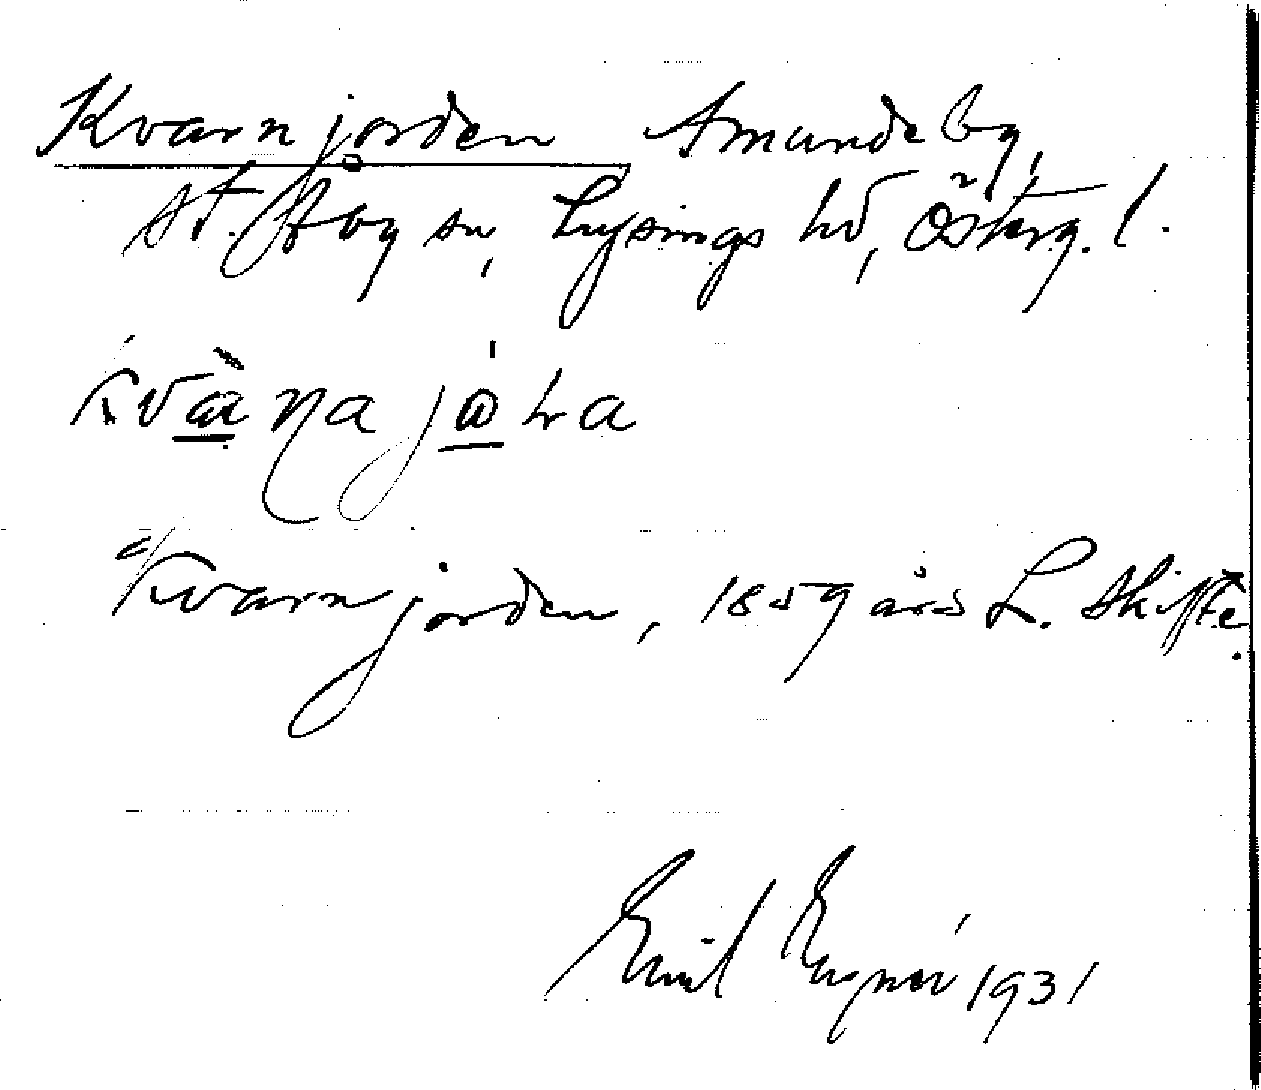 Kvarnjorden Amundeby,
St. Åby sn, Lysings hd, Österg. l.
kvæ̀ɳa jɷ́ɽa
Kvarnjorden, 1859 års L. skifte.
Emil 1931